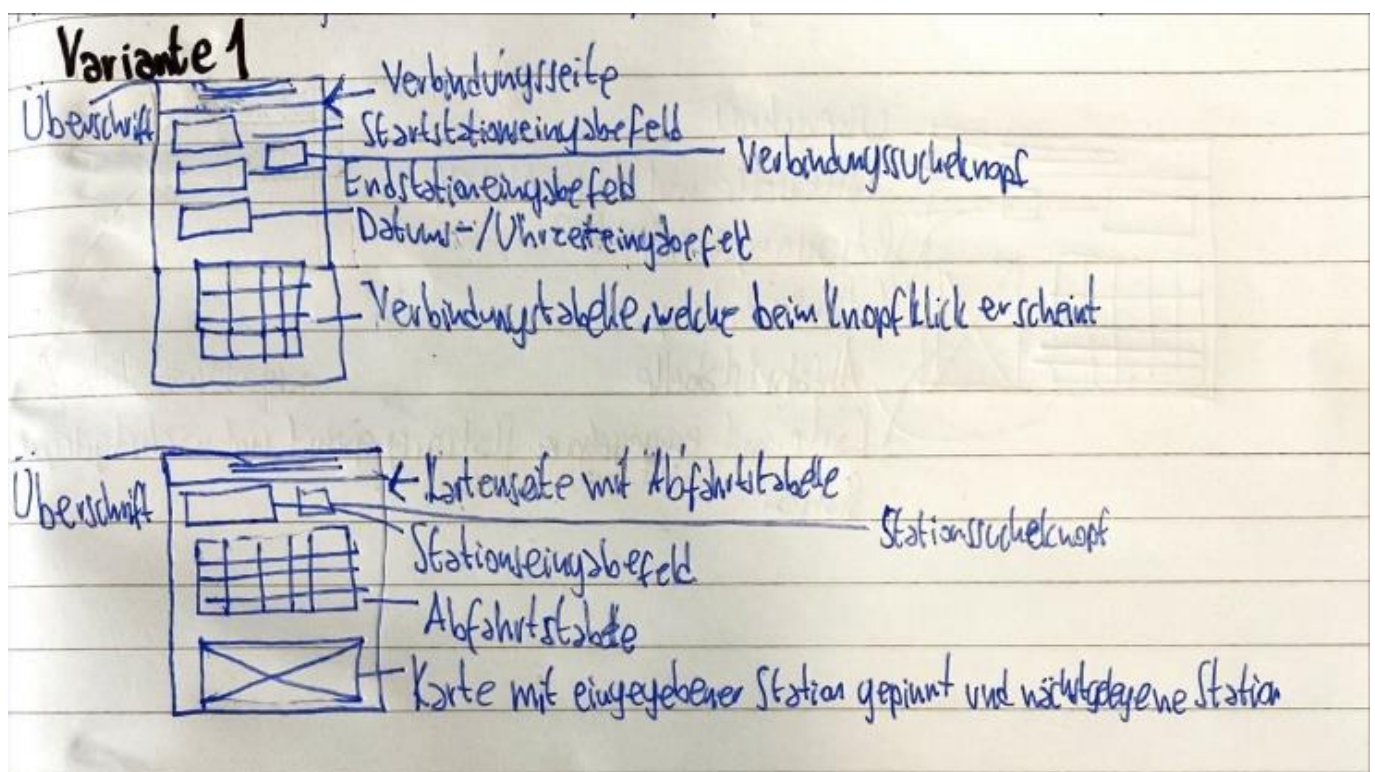 Variante 1
Verbindungsseite
Überschrift
Startstationseingabefeld
Verbindungssucheknopf
Endstationeingabefeld
Datums-/Uhrzeiteingabefeld
Verbindungstabelle, welche beim Knopfklick erscheint
Überschrift
Kartenseite mit Abfahrtstabelle
Stationssucheknopf
Stationseingabefeld
Abfahrtstabelle
Karte mit eingegebener Station gepinnt und nächstgelegene Station